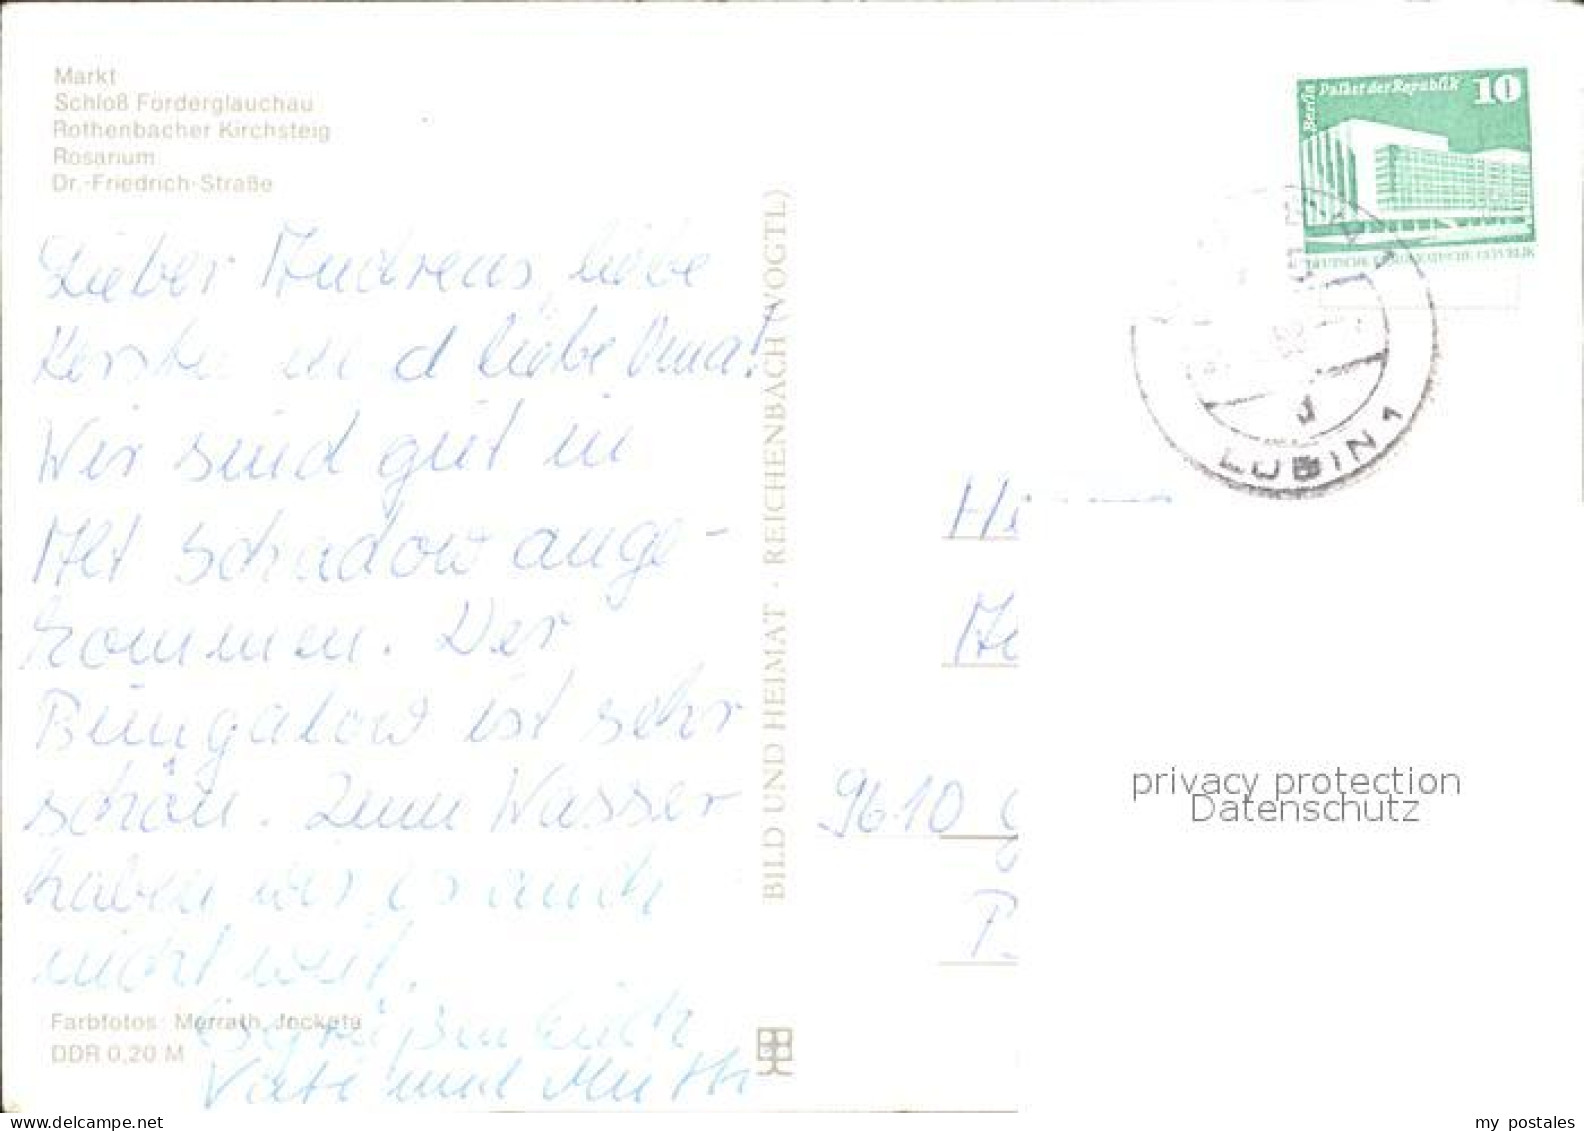 Markt
Schloß Forderglauchau
Rothenbacher Kirchsteig
Rosarium
Dr.-Friedrich-Straße
Lieber Andreas, liebe
Kerstin und liebe Oma!
Wir sind gut in
Alt Schadow ange-
kommen. Der
Bungalow ist sehr
schön. Zum Wasser
haben wir es auch
nicht weit.
Es grüßen Euch
Vati und Mutti
Farbfotos: Morrath, Jocketa
DDR 0,20 M
BILD UND HEIMAT · REICHENBACH (VOGTL)
Berlin Palast der Republik 10
DEUTSCHE DEMOKRATISCHE REPUBLIK
LUBIN 1
9610
privacy protection
Datenschutz
www.delcampe.net
my_postales